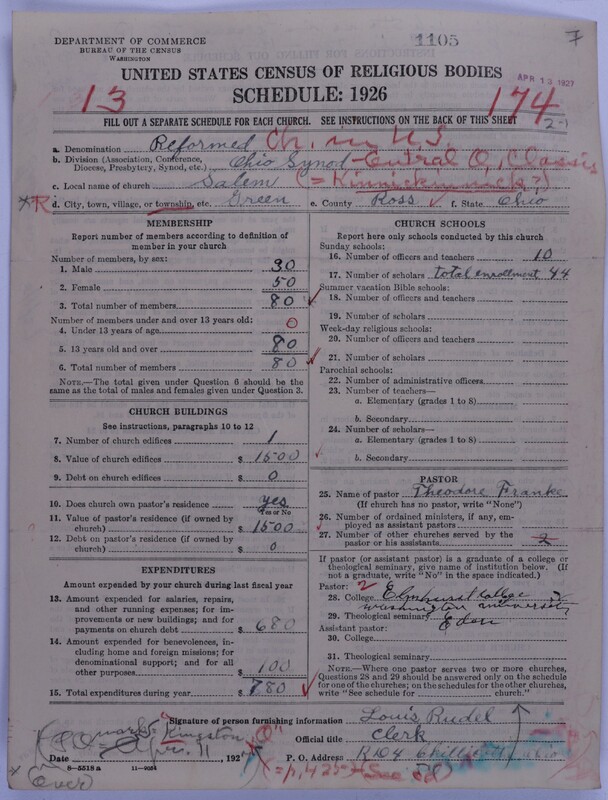 DEPARTMENT OF COMMERCE
BUREAU OF THE CENSUS
WASHINGTON
1105
7
UNITED STATES CENSUS OF RELIGIOUS BODIES
APR 13 1927
SCHEDULE: 1926
13
174
FILL OUT A SEPARATE SCHEDULE FOR EACH CHURCH. SEE INSTRUCTIONS ON THE BACK OF THIS SHEET
a. Denomination Reformed Ch. in U.S.
b. Division (Association, Conference, Diocese, Presbytery, Synod, etc.) Ohio Synod - Central O. Classis
c. Local name of church Salem (= Kinnickinnack?)
*R d. City, town, village, or township, etc. Green e. County Ross f. State Ohio
MEMBERSHIP
Report number of members according to definition of member in your church
Number of members, by sex:
1. Male 30
2. Female 50
3. Total number of members 80
Number of members under and over 13 years old:
4. Under 13 years of age 0
5. 13 years old and over 80
6. Total number of members 80
NOTE.—The total given under Question 6 should be the same as the total of males and females given under Question 3.
CHURCH BUILDINGS
See instructions, paragraphs 10 to 12
7. Number of church edifices 1
8. Value of church edifices $ 1500
9. Debt on church edifices $ 0
10. Does church own pastor's residence yes
Yes or No
11. Value of pastor's residence (if owned by church) $ 1500
12. Debt on pastor's residence (if owned by church) $ 0
EXPENDITURES
Amount expended by your church during last fiscal year
13. Amount expended for salaries, repairs, and other running expenses; for improvements or new buildings; and for payments on church debt $ 680
14. Amount expended for benevolences, including home and foreign missions; for denominational support; and for all other purposes $ 100
15. Total expenditures during year $ 780
CHURCH SCHOOLS
Report here only schools conducted by this church
Sunday schools:
16. Number of officers and teachers 10
17. Number of scholars total enrollment 44
Summer vacation Bible schools:
18. Number of officers and teachers
19. Number of scholars
Week-day religious schools:
20. Number of officers and teachers
21. Number of scholars
Parochial schools:
22. Number of administrative officers
23. Number of teachers—
a. Elementary (grades 1 to 8)
b. Secondary
24. Number of scholars—
a. Elementary (grades 1 to 8)
b. Secondary
PASTOR
25. Name of pastor Theodore Franke
(If church has no pastor, write "None")
26. Number of ordained ministers, if any, employed as assistant pastors
27. Number of other churches served by the pastor or his assistants 2
If pastor (or assistant pastor) is a graduate of a college or theological seminary, give name of institution below. (If not a graduate, write "No" in the space indicated.)
Pastor: 2
28. College Elmhurst College
Washington university
29. Theological seminary Eden
Assistant pastor:
30. College
31. Theological seminary
NOTE.—Where one pastor serves two or more churches, Questions 28 and 29 should be answered only on the schedule for one of the churches; on the schedules for the other churches, write "See schedule for church."
Signature of person furnishing information Louis Rudel
Kingston
Official title Clerk
Date 11, 192
P. O. Address R D 4 Ohio
8—5518 a 11—9054
(over)